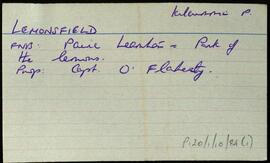 Kilcummin P.
LEMONSFIELD
FNB: Páirc = Park of
the lemons.
Prop: Capt. O' Flaherty.
P120/1/10/84(1)